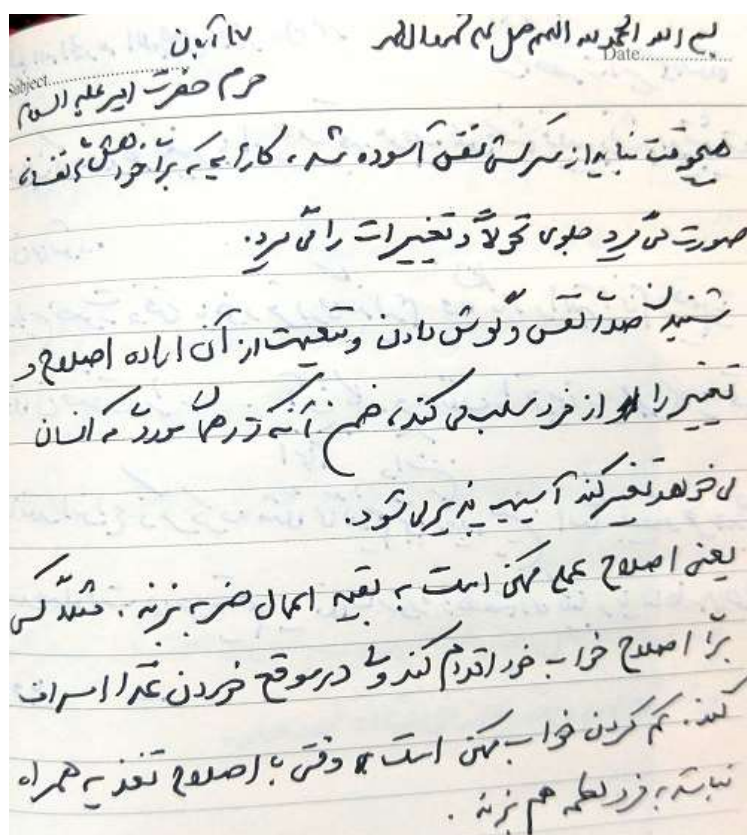 بسم الله الحمد لله اللهم صل علی محمد و آل محمد
Date
۱۷ آبان
Subject
حرم حضرت امیر علیه السلام
هیچوقت نباید از سرکشی نفس آسوده شد، کارهایی که برای خواهش‌های نفسانی
صورت می‌گیرد جلوی تحولات و تغییرات را می‌گیرد.
شنیدن صدای نفس و گوش دادن و تبعیت از آن اراده اصلاح و
تغییر را از فرد سلب می‌کند، ضمن آنکه در همان موردی که انسان
می‌خواهد تغییر کند آسیب پذیر می‌شود.
یعنی اصلاح عمل ممکن است به بقیه اعمال ضربه بزند. مثلاً کسی
برای اصلاح خواب خود اقدام کند ولی در موقع خوردن غذا اسراف
کند. کم کردن خواب ممکن است وقتی با اصلاح تغذیه همراه
نباشد به فرد لطمه هم بزند.